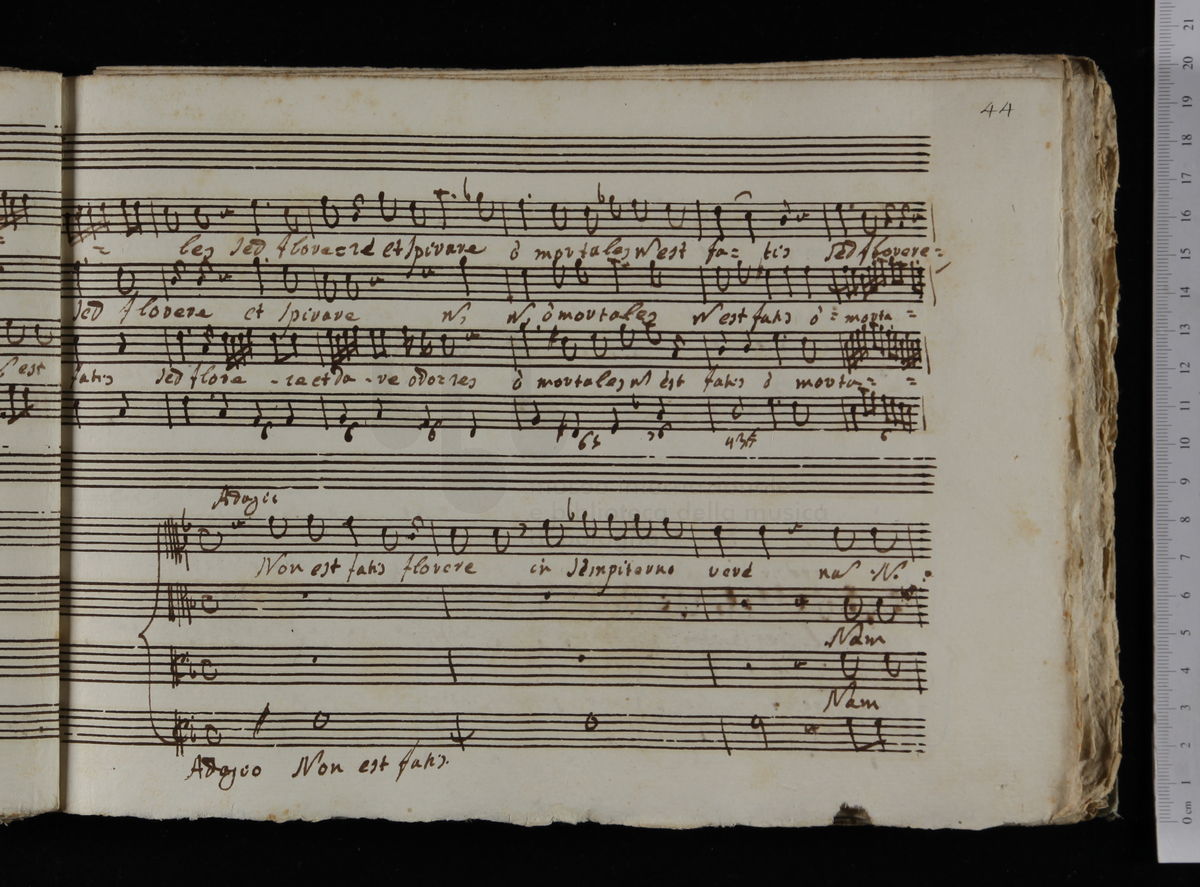 44
les sed florere et spirare ò mortales N est fa= tis sed florere=
sed florere et spirare N; N; ò mortales N est fatis ò = morta =
s'est fatis sed flore - re et da - re odores ò mortales N est fatis ò morta= =
6 6 6 6 5 6 4 3 6
Adagio
Non est fatis florere in sempiterno vere nas N.
Nam
Nam
Adagio Non est fatis.
e biblioteca della musica
0 cm 1 2 3 4 5 6 7 8 9 10 11 12 13 14 15 16 17 18 19 20 21